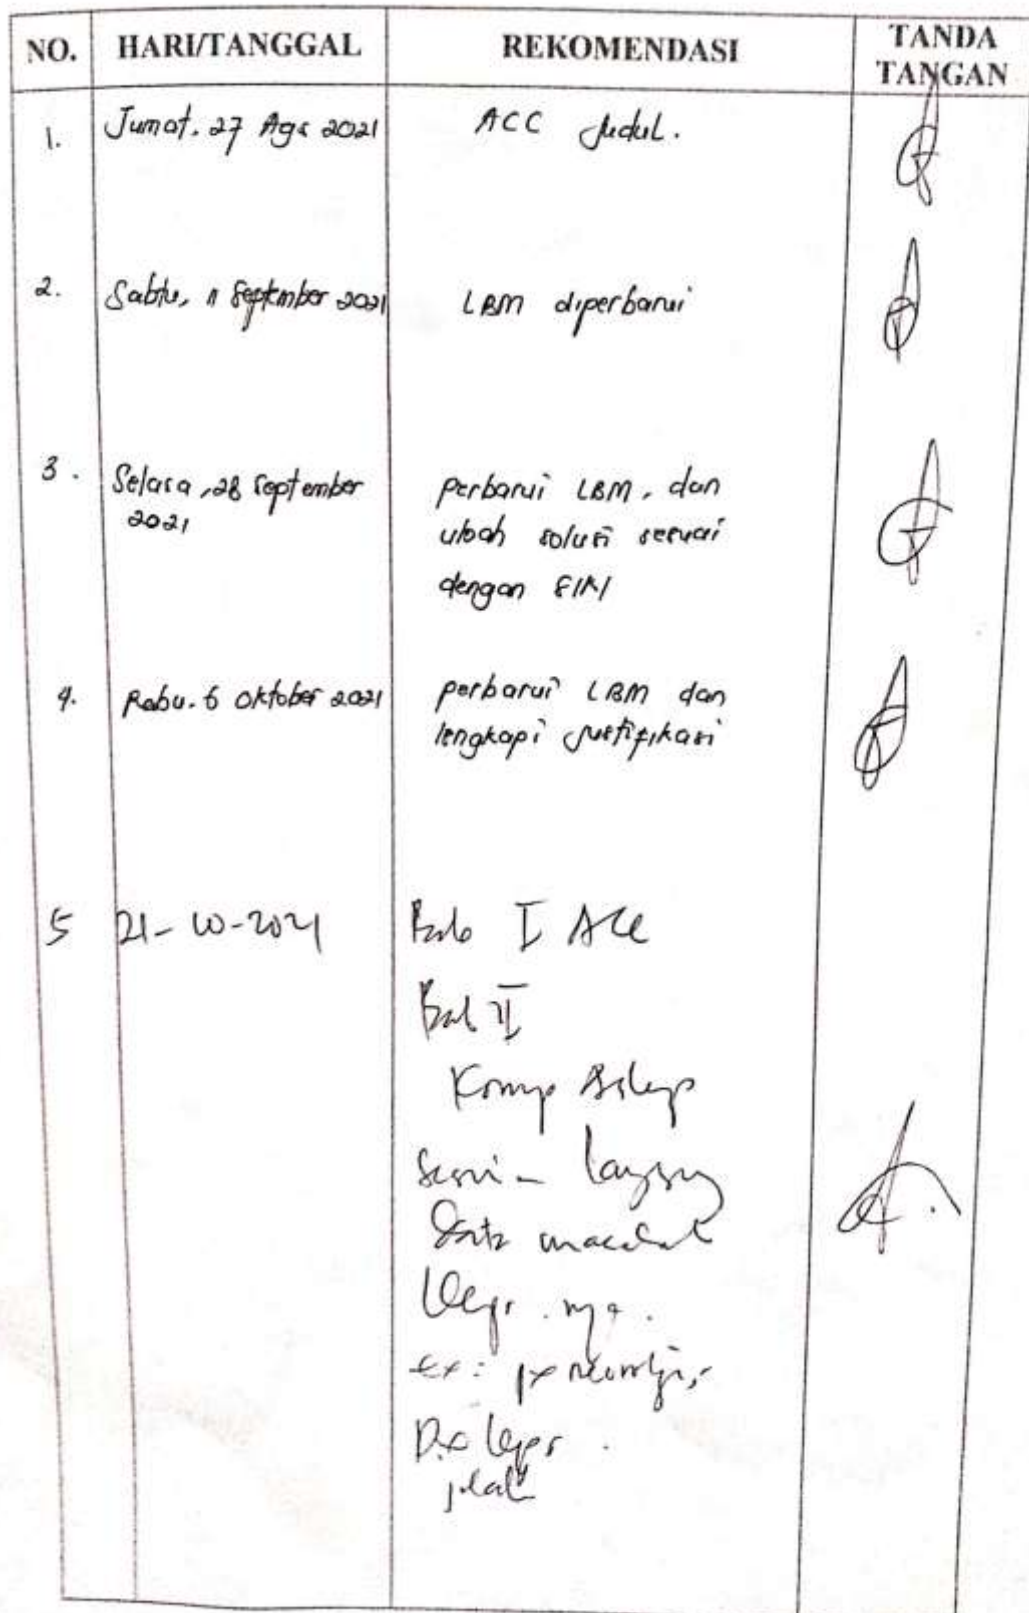 NO. HARI/TANGGAL REKOMENDASI TANDA TANGAN
1. Jumat, 27 Ags 2021 ACC Judul.
2. Sabtu, 11 September 2021 LBM diperbarui
3. Selasa, 28 September 2021
perbarui LBM, dan
ubah solusi sesuai
dengan SIKI
4. Rabu. 6 Oktober 2021
perbarui LBM dan
lengkapi justifikasi
5 21-10-2021
Bab I ACC
Bab II
Konsep Askep
Data
ex: px